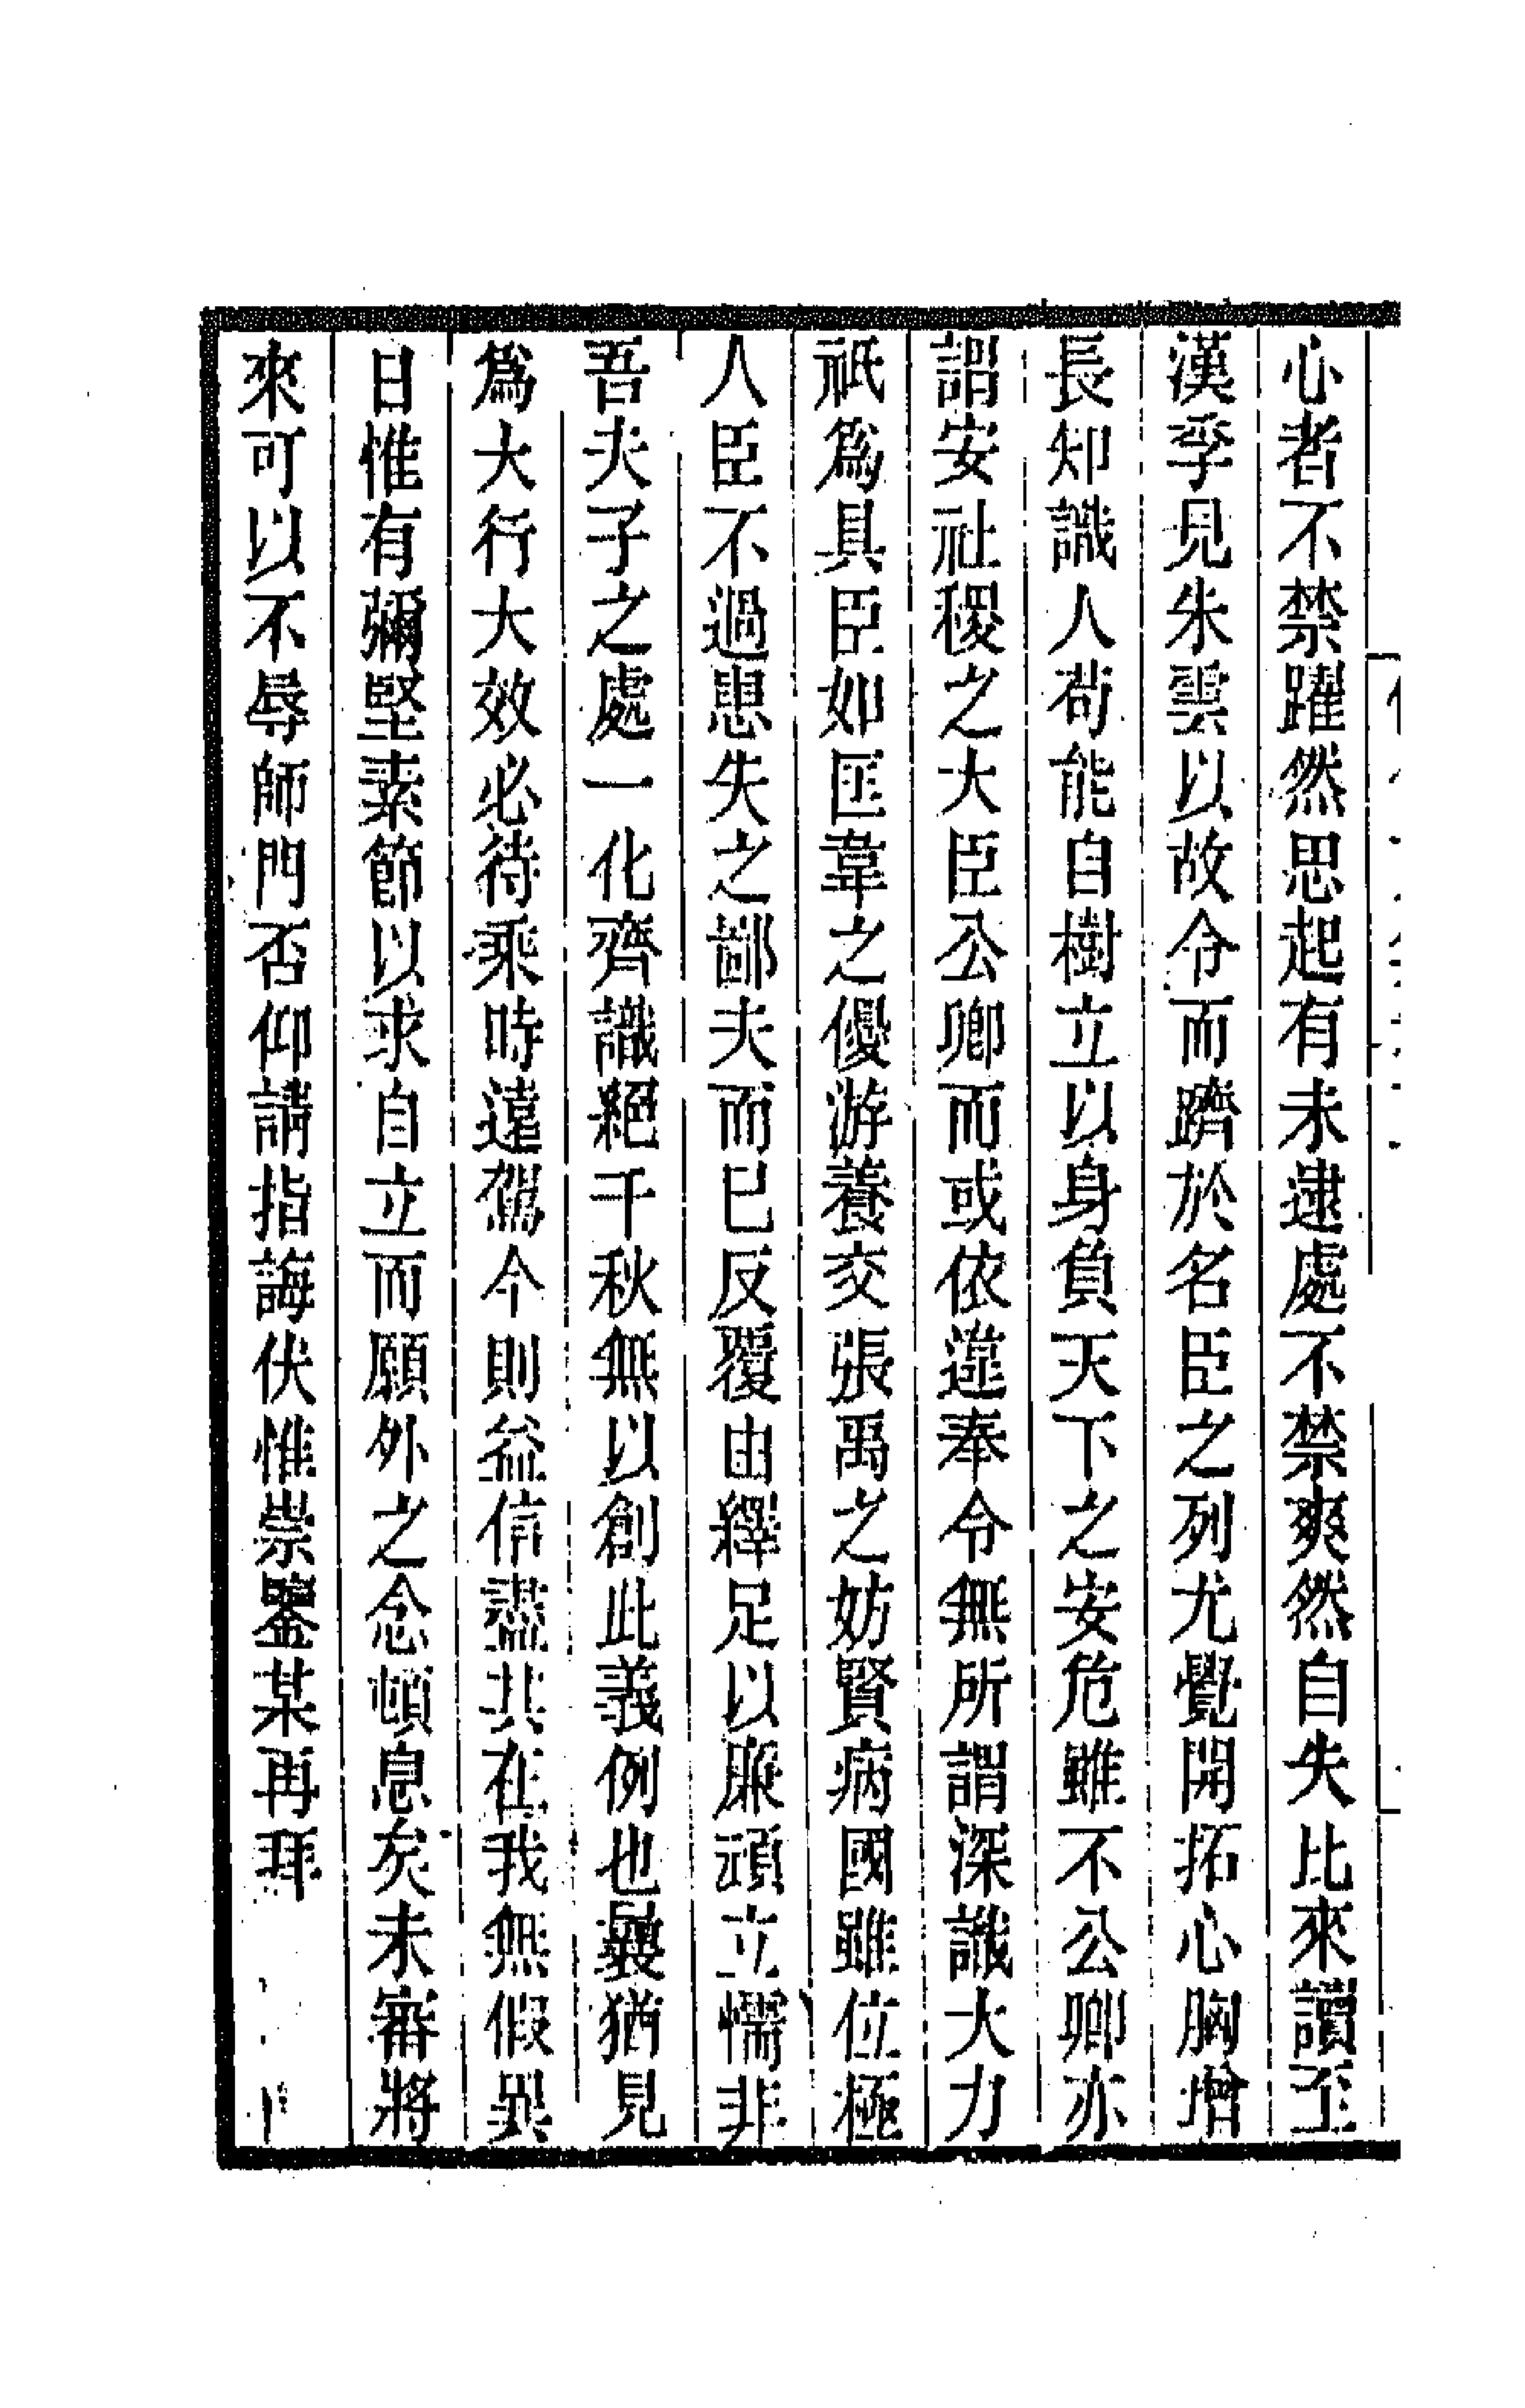 心者不禁躍然思起有未逮處不禁爽然自失比來讀至
漢季見朱雲以故令而躋於名臣之列尤覺開拓心胸增
長知識人苟能自樹立以身負天下之安危雖不公卿亦
謂安社稷之大臣公卿而或依違奉令無所謂深識大力
祇爲具臣如匡韋之優游養交張禹之妨賢病國雖位極
人臣不過患失之鄙夫而已反覆由繹足以廉頑立懦非
吾夫子之處一化齊識絕千秋無以創此義例也曩猶見
爲大行大效必待乘時遠駕今則益信盡其在我無假異
日惟有彌堅素節以求自立而願外之念頓息矣未審將
來可以不辱師門否仰請指誨伏惟崇鑒某再拜